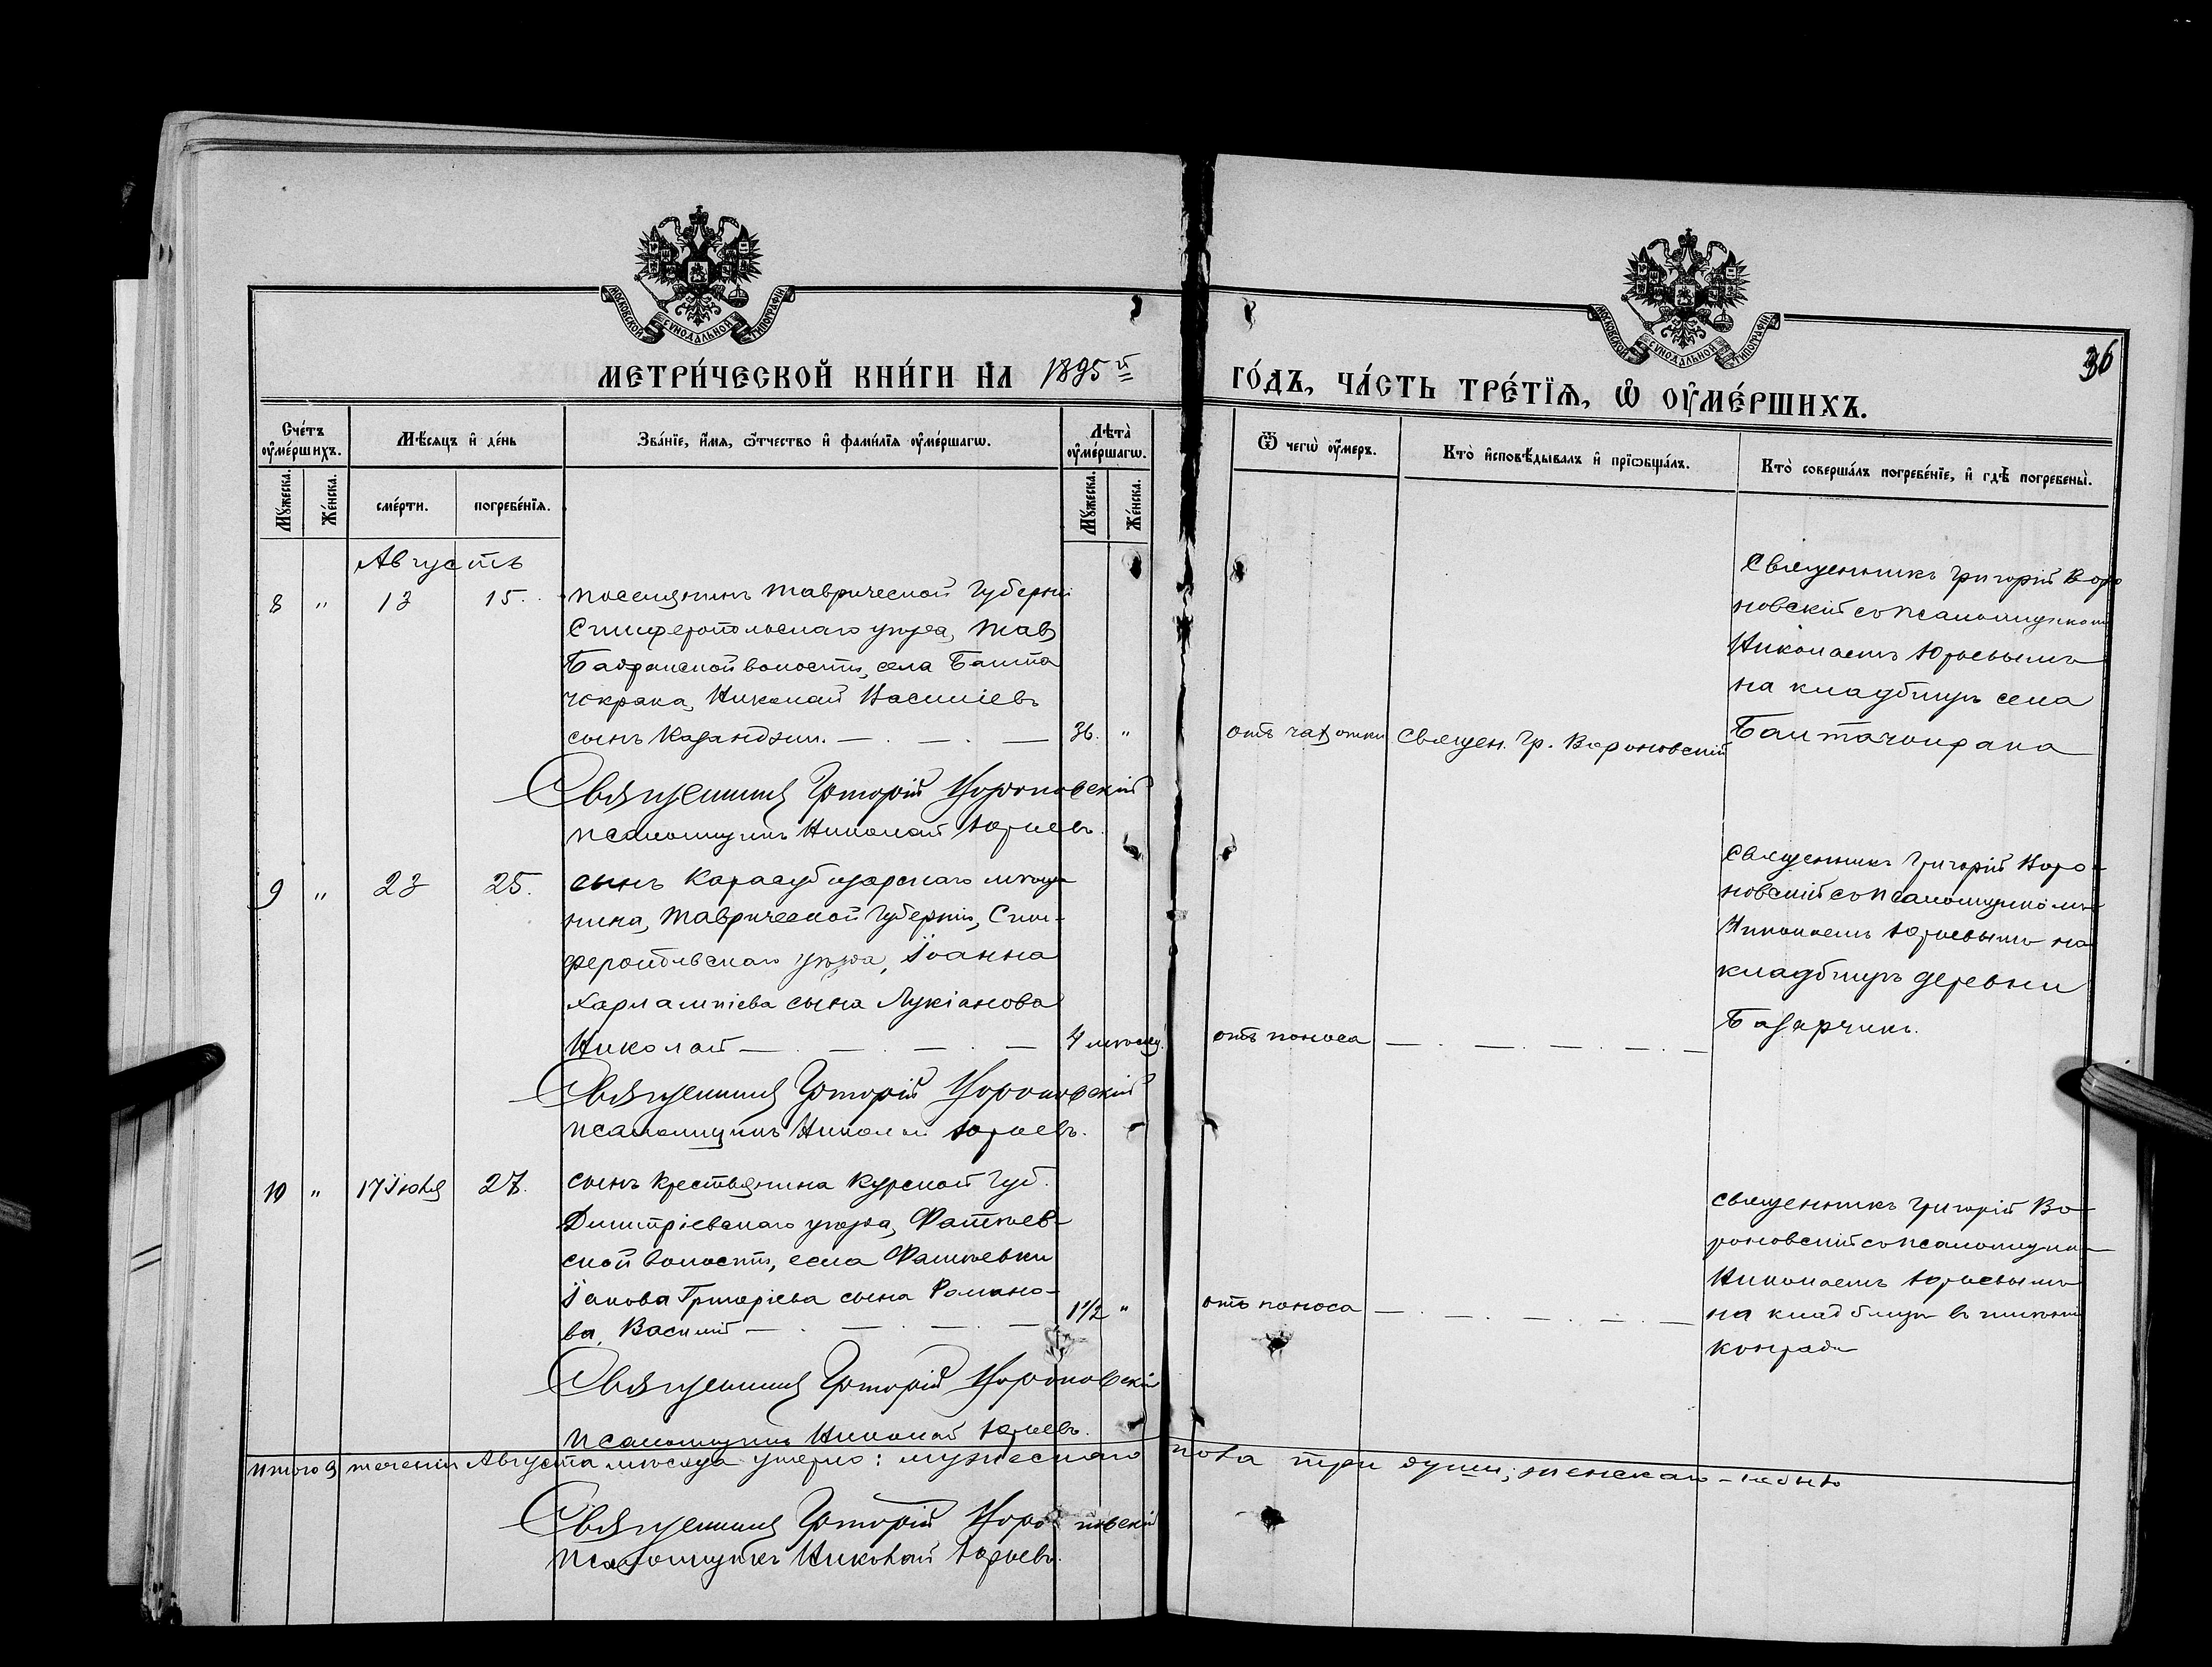 МОСКОВСКОЙ СѴНОДАЛЬНОЙ ТИПОГРАФІИ
МОСКОВСКОЙ СѴНОДАЛЬНОЙ ТИПОГРАФІИ
36
МЕТРИ́ЧЕСКОЙ КНИ́ГИ НА 1895 й
ГО́ДЪ, ЧА́СТЬ ТРЕ́ТЇѦ, Ѡ ОУ҆МЕ́РШИХЪ.
Сче́тъ оу҆ме́ршихъ.
Мѣ́сѧцъ и҆ де́нь
Зва́нїе, и҆́мѧ, ѻ҆́тчество и҆ фамилїѧ оу҆ме́ршагѡ.
Лѣта̀ оу҆ме́ршагѡ.
Ѿ чегѡ̀ оу҆́меръ.
Кто̀ и҆сповѣ́дывалъ и҆ прїѡбща́лъ.
Кто̀ соверша́лъ погребе́нїе, и҆ гдѣ̀ погребены̀.
Мꙋ́жеска. Же́нска. сме́рти. погребе́нїѧ. Мꙋ́жеска. Же́нска.
Августъ
8 " 13 15. поселянинъ Таврической Губерніи
Симферопольскаго уѣзда, Тав
Бадракской волости, села Башта
чокрака, Николай Василіевъ
сынъ Казанджи. — . — . — 36. "
отъ чахотки
Священ. Гр. Вороновскій
Священникъ Григорій Воро
новскій со псаломщикомъ
Николаемъ Юрьевымъ
на кладбищѣ села
Баштачокрака
Священникъ Григорій Вороновскій
псаломщикъ Николай Юрьевъ.
9 " 23 25. сынъ Карасубазарскаго мѣща
нина, Таврической Губерніи, Сим-
феропольскаго уѣзда, Іоанна
Харлампіева сына Лукіанова
Николай — . — . — . — 4 мѣсяц.
отъ поноса — . — . — . — . —
Священникъ Григорій Воро-
новскій со псаломщикомъ
Николаемъ Юрьевымъ на
кладбищѣ деревни
Базарчикъ.
Священникъ Григорій Вороновскій
псаломщикъ Николай Юрьевъ.
10 " 17 Іюля 27. сынъ крестьянина Курской Губ.
Димитріевскаго уѣзда, Фатѣев-
ской волости, села Фатѣевки
Іакова Григоріева сына Романо-
ва, Василій — . — . — . — 1 1/2 "
отъ поноса — . — . — . — . —
священникъ Григорій Во-
роновскій со псаломщик
Николаемъ Юрьевымъ
на кладбищѣ въ имѣніи
Конради
Священникъ Григорій Вороновскій
псаломщикъ Николай Юрьевъ.
Итого в теченіи Августа мѣсяца умерло: мужескаго пола три души; женскаго – не было
Священникъ Григорій Вороновскій
Псаломщикъ Николай Юрьевъ.